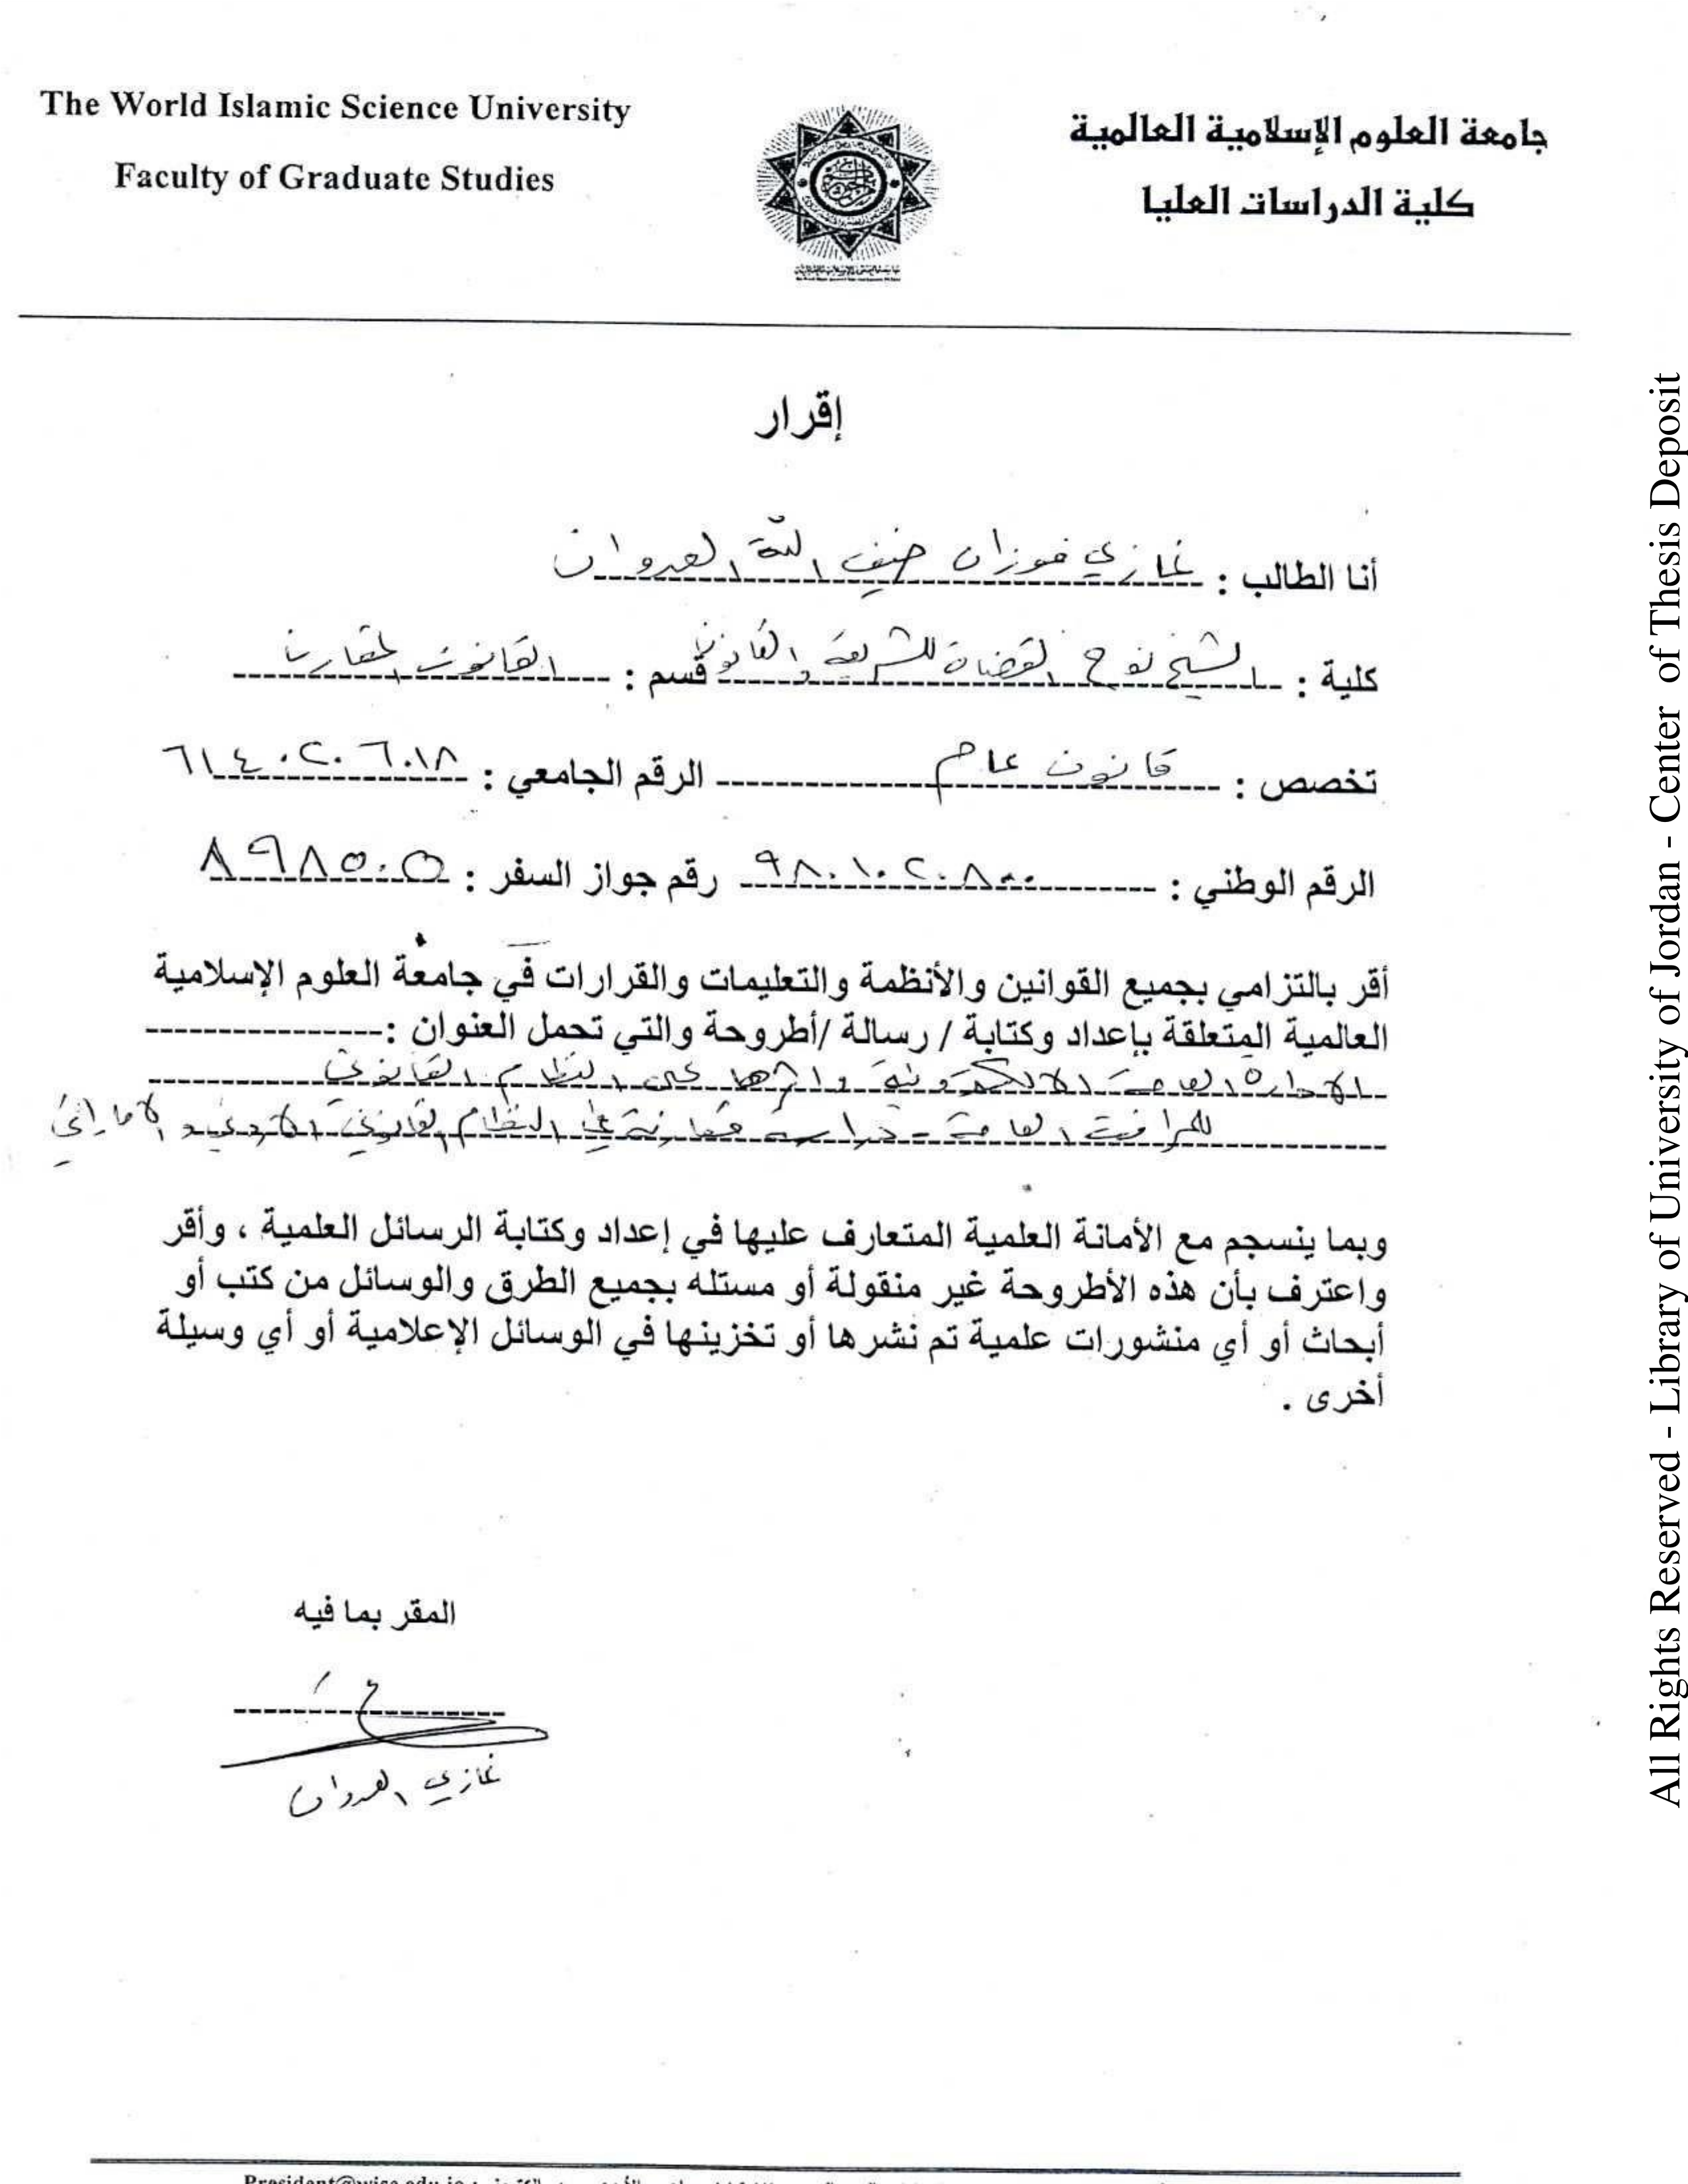 The World Islamic Science University
Faculty of Graduate Studies
جامعة العلوم الإسلامية العالمية
كلية الدراسات العليا
إقرار
أنا الطالب : غازي فوزان ضيف الله العدوان
كلية : الشيخ نوح القضاة للشريعة والقانون قسم : القانون المقارن
تخصص : قانون عام الرقم الجامعي : ٦١٤٠٢٠٦٠١٨
الرقم الوطني : ٩٨٠١٠٢٠٨٠٠ رقم جواز السفر : ٨٩٨٥٠٥
أقر بالتزامي بجميع القوانين والأنظمة والتعليمات والقرارات في جامعة العلوم الإسلامية
العالمية المتعلقة بإعداد وكتابة / رسالة /أطروحة والتي تحمل العنوان :
الادارة العامة الالكترونية واثرها على النظام القانوني
للمرافق العامة - دراسة مقارنة في النظام القانوني الاردني و الاماراتي
وبما ينسجم مع الأمانة العلمية المتعارف عليها في إعداد وكتابة الرسائل العلمية ، وأقر
واعترف بأن هذه الأطروحة غير منقولة أو مستله بجميع الطرق والوسائل من كتب أو
أبحاث أو أي منشورات علمية تم نشرها أو تخزينها في الوسائل الإعلامية أو أي وسيلة
أخرى .
المقر بما فيه
غازي العدوان
All Rights Reserved - Library of University of Jordan - Center of Thesis Deposit